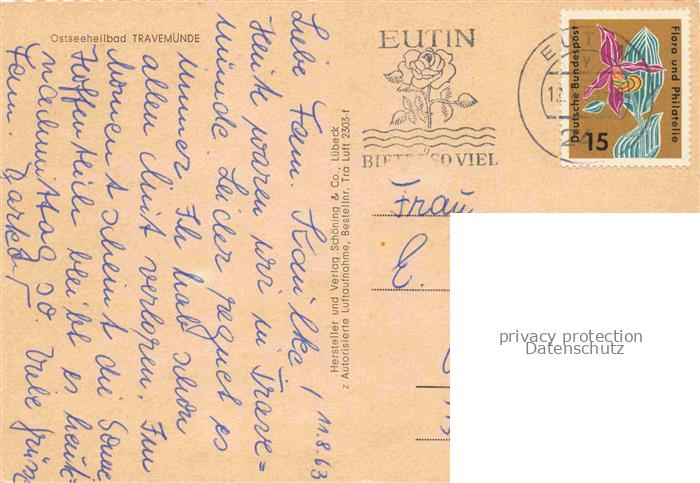 Ostseeheilbad TRAVEMÜNDE
11.8.63
Liebe Fam.
Heute waren wir in Trave=
münde. Leider regnet es
immer Ich hab schon
allen Mut verloren. Im
Moment scheint die Sonne
Hoffentlich bleibt es heut
nachmittag so. Viele Grüße
Fam.
Hersteller und Verlag Schöning & Co., Lübeck
z Autorisierte Luftaufnahme, Bestellnr. Tra Luft 2303-f
EUTIN
BIETET SO VIEL
EUT
Deutsche Bundespost
Flora und Philatelie
15
Frau
privacy protection
Datenschutz